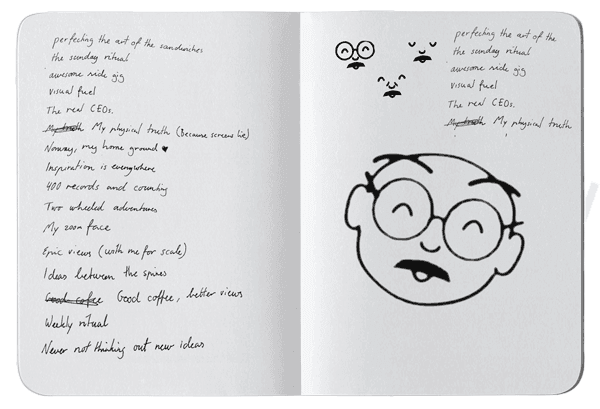 perfecting the art of the sandwiches
the sunday ritual
awesome side gig
visual fuel
The real CEOs.
My truth My physical truth (Because screens lie)
Norway, my home ground ♥
Inspiration is everywhere
400 records and counting
Two wheeled adventures
My zoom face
Epic views (with me for scale)
Ideas between the spines
Good cofee Good coffee, better views
Weekly ritual
Never not thinking out new ideas
perfecting the art of the
the sunday ritual
awesome side gig
visual fuel
The real CEOs.
My truth My physical truth